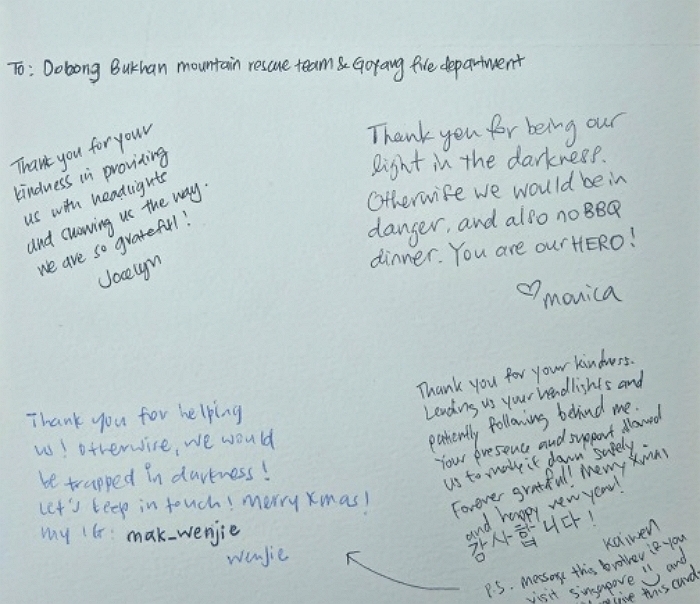 To: Dobong Bukhan mountain rescue team & Goyang fire department
Thank you for your
kindness in providing
us with headlights
and showing us the way.
We are so grateful!
Jocelyn
Thank you for being our
light in the darkness.
Otherwise we would be in
danger, and also no BBQ
dinner. You are our HERO!
♡ monica
Thank you for helping
us! Otherwise, we would
be trapped in darkness!
Let's keep in touch! Merry Xmas!
my IG: mak_wenjie
wenjie
Thank you for your kindness.
Lending us your headlights and
patiently following behind me.
Your presence and support allowed
us to make it down safely.
Forever grateful! Merry Xmas
and happy new year!
감사합니다!
Kaiwen
P.S. message this brother if you
visit Singapore and
receive this card